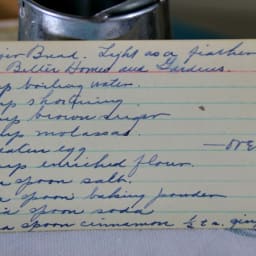 ger Bread. Light as a feather
Better Homes and Gardens.
up boiling water.
up shortning
up brown sugar
up molassas.
eaten egg
up enriched flour.
a spoon salt.
a spoon baking powder
spoon soda
a spoon cinnamon & ta. ging
OVE